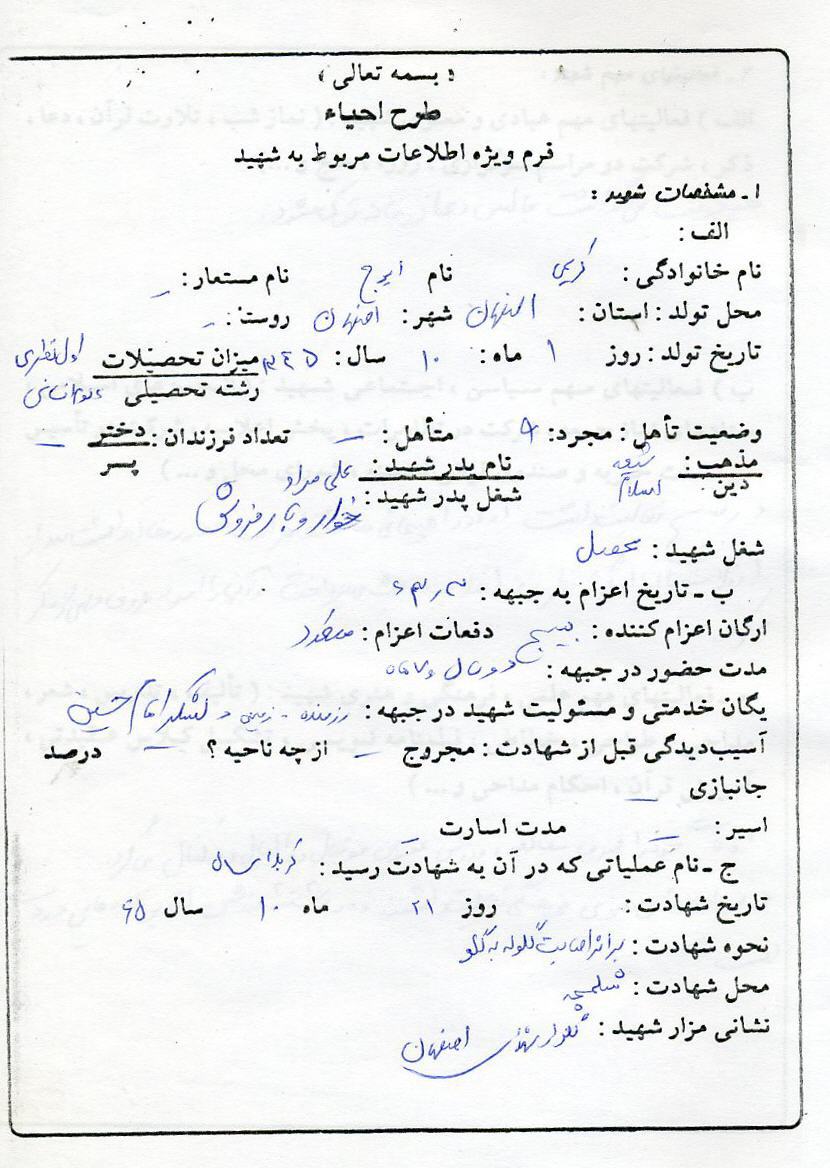 « بسمه تعالی »
طرح احیاء
فرم ویژه اطلاعات مربوط به شهید
۱ـ مشخصات شهید :
الف :
نام خانوادگی : کریمی نام ایرج نام مستعار : ـ
محل تولد : استان : اصفهان شهر : اصفهان روستا : ـ
تاریخ تولد : روز ۱ ماه : ۱۰ سال : میزان تحصیلات اول نظری
رشته تحصیلی
وضعیت تأهل : مجرد : متأهل : ـ تعداد فرزندان : دختر ـ
پسر
مذهب : شیعه نام پدر شهید : علی مراد
دین : اسلام شغل پدر شهید : خواروبار فروش
شغل شهید : محصل
ب ـ تاریخ اعزام به جبهه :
ارگان اعزام کننده : بسیج دفعات اعزام : متعدد
مدت حضور در جبهه : دو سال و ۷ ماه
یگان خدمتی و مسئولیت شهید در جبهه : رزمنده - زرهی - لشکر امام حسین
آسیب‌دیدگی قبل از شهادت : مجروح ـ از چه ناحیه ؟ ـ درصد
جانبازی ـ
اسیر : ـ مدت اسارت ـ
ج ـ نام عملیاتی که در آن به شهادت رسید : کربلای
تاریخ شهادت : روز ۲۱ ماه ۱۰ سال ۶۵
نحوه شهادت : بر اثر اصابت گلوله به گلو
محل شهادت : شلمچه
نشانی مزار شهید : گلزار شهدای اصفهان